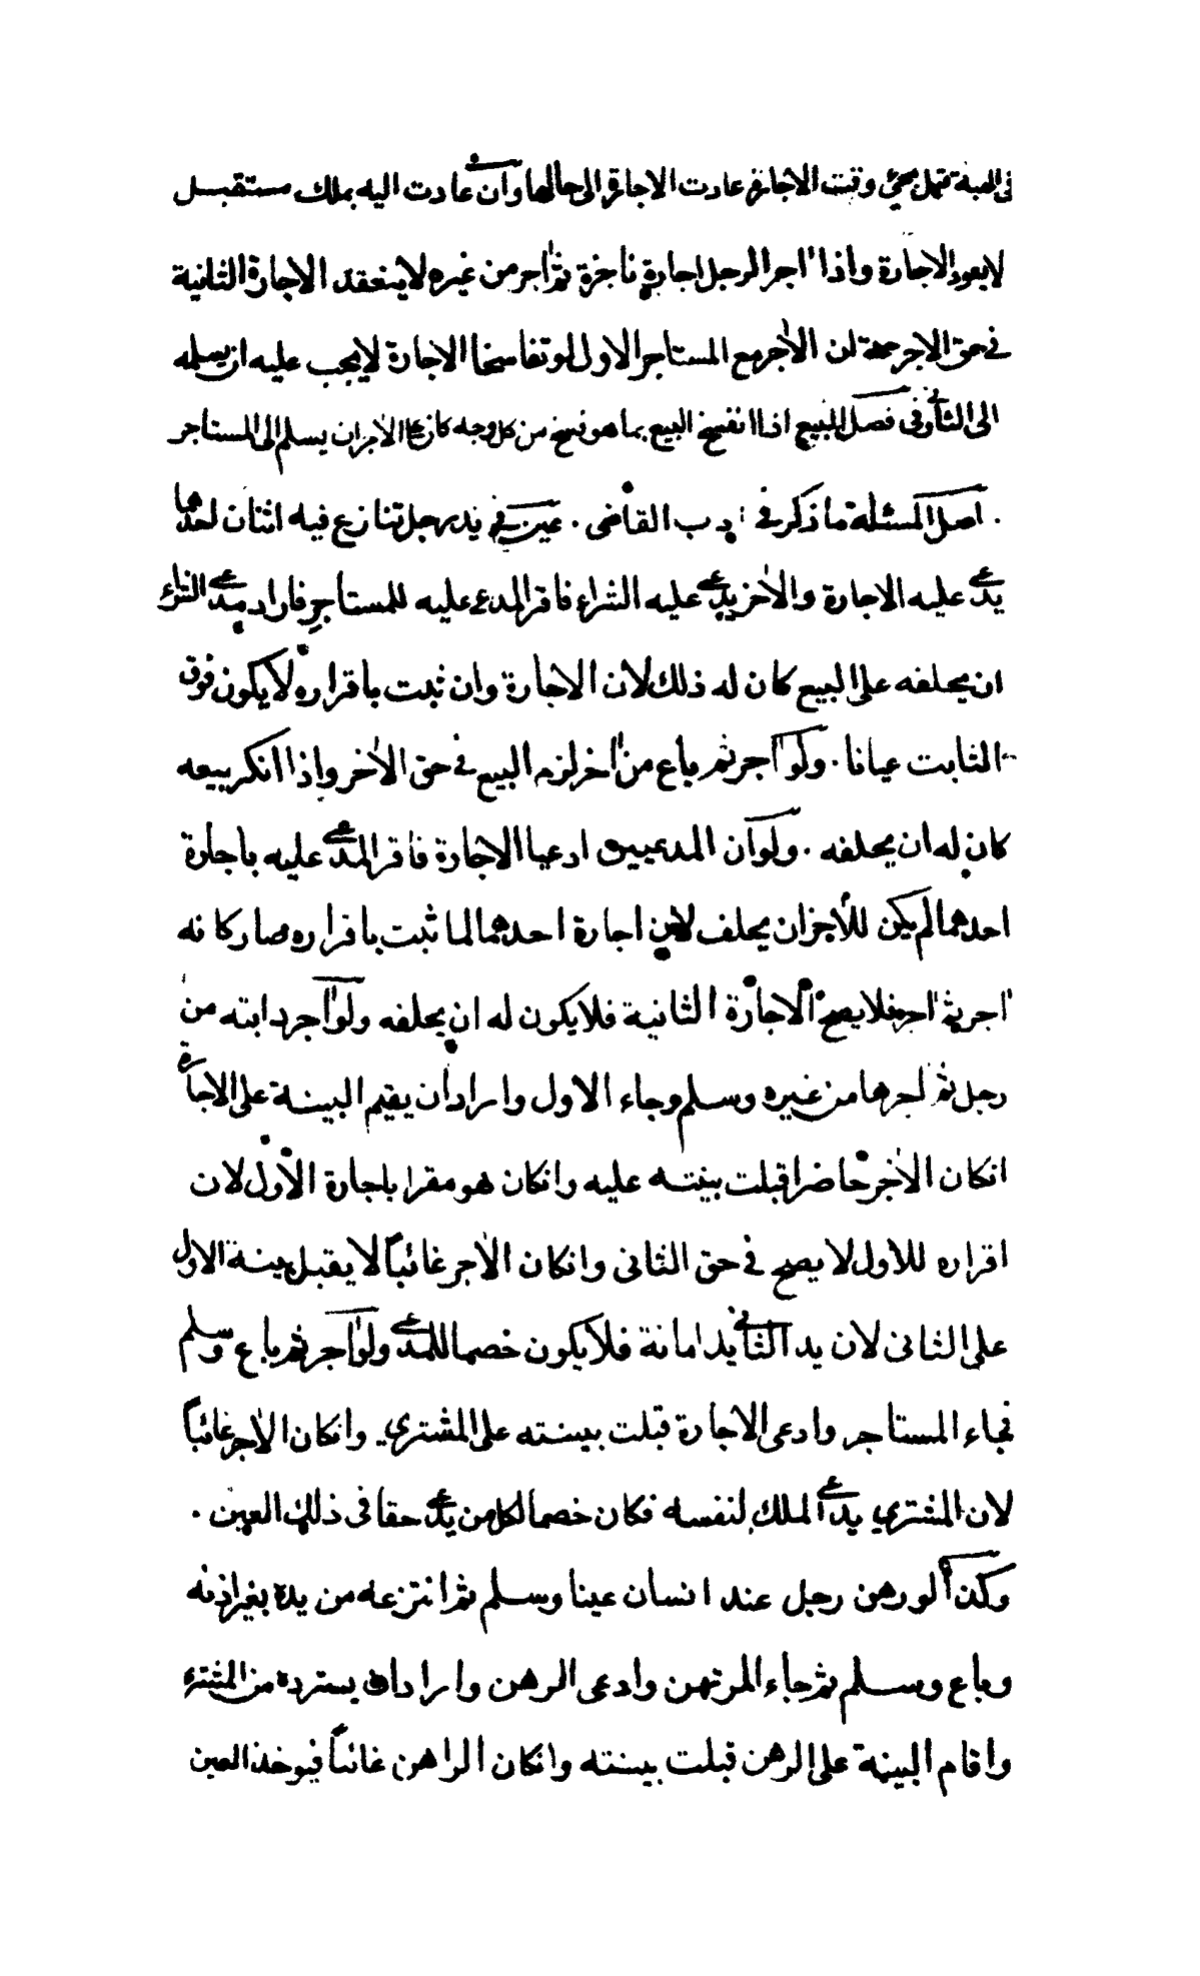 فى الهبة قبل مجئ وقت الاجارة عادت الاجارة الى حالها وان عادت اليه بملك مستقبل
لا يعود الاجارة واذا اجر الرجل اجارة ناجزة ثم اجر من غيره لا ينعقد الاجارة الثانية
فى حق الاجر حتى ان الاجر مع المستاجر الاول لو تفاسخا الاجارة لا يجب عليه ان يسلمه
الى الثانى وفى فصل البيع اذا انفسخ البيع بما هو فسخ من كل وجه كان على الاجر ان يسلم الى المستاجر
. اصل المسئلة ما ذكر فى ادب القاضى . عين فى يد رجل تنازع فيه اثنان احدهما
يدعى عليه الاجارة والاخر يدعى عليه الشراء فاقر المدعى عليه للمستاجر فاراد مدعى الشراء
ان يحلفه على البيع كان له ذلك لان الاجارة وان ثبت باقراره لا يكون فوق
الثابت عيانا . ولو اجر ثم باع من اخر لزم البيع فى حق الاخر واذا انكر بيعه
كان له ان يحلفه . ولو ان المدعيين ادعيا الاجارة فاقر المدعى عليه باجارة
احدهما لم يكن للاخر ان يحلف لان اجارة احدهما لما ثبت باقراره صار كانه
اجر ثم اجر فلا يصح الاجارة الثانية فلا يكون له ان يحلفه ولو اجر دابته من
رجل ثم اجرها من غيره وسلم وجاء الاول واراد ان يقيم البينة على الاجارة
انكان الاجر حاضرا قبلت بينته عليه وانكان هو مقرا باجارة الاول لان
اقراره للاول لا يصح فى حق الثانى وانكان الاجر غائبا لا يقبل بينة الاول
على الثانى لان يد الثانى يد امانة فلا يكون خصما للمدعى ولو اجر ثم باع وسلم
فجاء المستاجر وادعى الاجارة قبلت بينته على المشتري وانكان الاجر غائبا
لان المشتري يدعى الملك لنفسه فكان خصما لكل من يدعى حقا فى ذلك العين .
وكذا لو رهن رجل عند انسان عينا وسلم ثم انتزعه من يده بغير اذنه
وباع وسلم ثم جاء المرتهن وادعى الرهن واراد ان يسترده من المشترى
واقام البينة على الرهن قبلت بينته وانكان الراهن غائبا فيوخذ العين